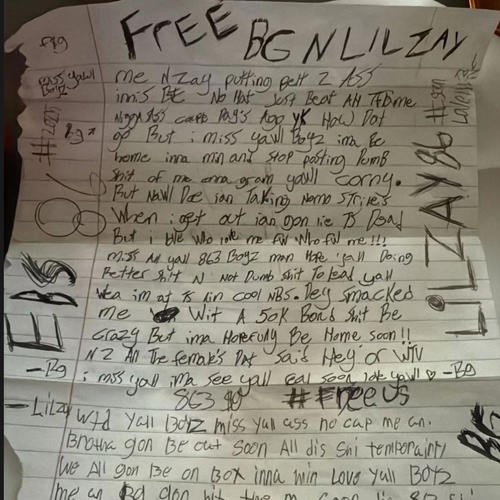 FREE BG N LILZAY
Bg
miss yawll
Boyz
#2025
Bg
86
EBS
me N zay putting Belt 2 ASS
inn's BE No Hat Just Beat AH
Ass Pag's Agg YK How Dat
go But i miss yawll Boyz ima Be
home inna min and stop posting Dumb
shit of me onna gram yawll corny.
But Nawll Doe ian Taking nomo Strikes
When i get out ian gon lie Ts Dead
But i who love me Fil who Ful me!!!
miss All yawll 863 Boyz man Hope Y'all Doing
Better shit N Not Dumb shit To lead yall
im at Ts Ain cool NBS. Dey smacked
me Wit A 50k Bond Shit Be
Crazy But ima Hopefully Be Home soon!!
N 2 All The female's Dat Said Hey or WTV
i miss yall ima see yall real soon love yall ♡ -Bg
-Bg
863 $0 #FreeUs
-Lilzay
Wtd Yall Boyz miss yall ass no cap me an.
Brotha gon Be out Soon All dis Shi temporainy
We All gon Be on Box inna min Love Yall BOYZ
me an Bg gon hit the
LiLZAY 86
#soon